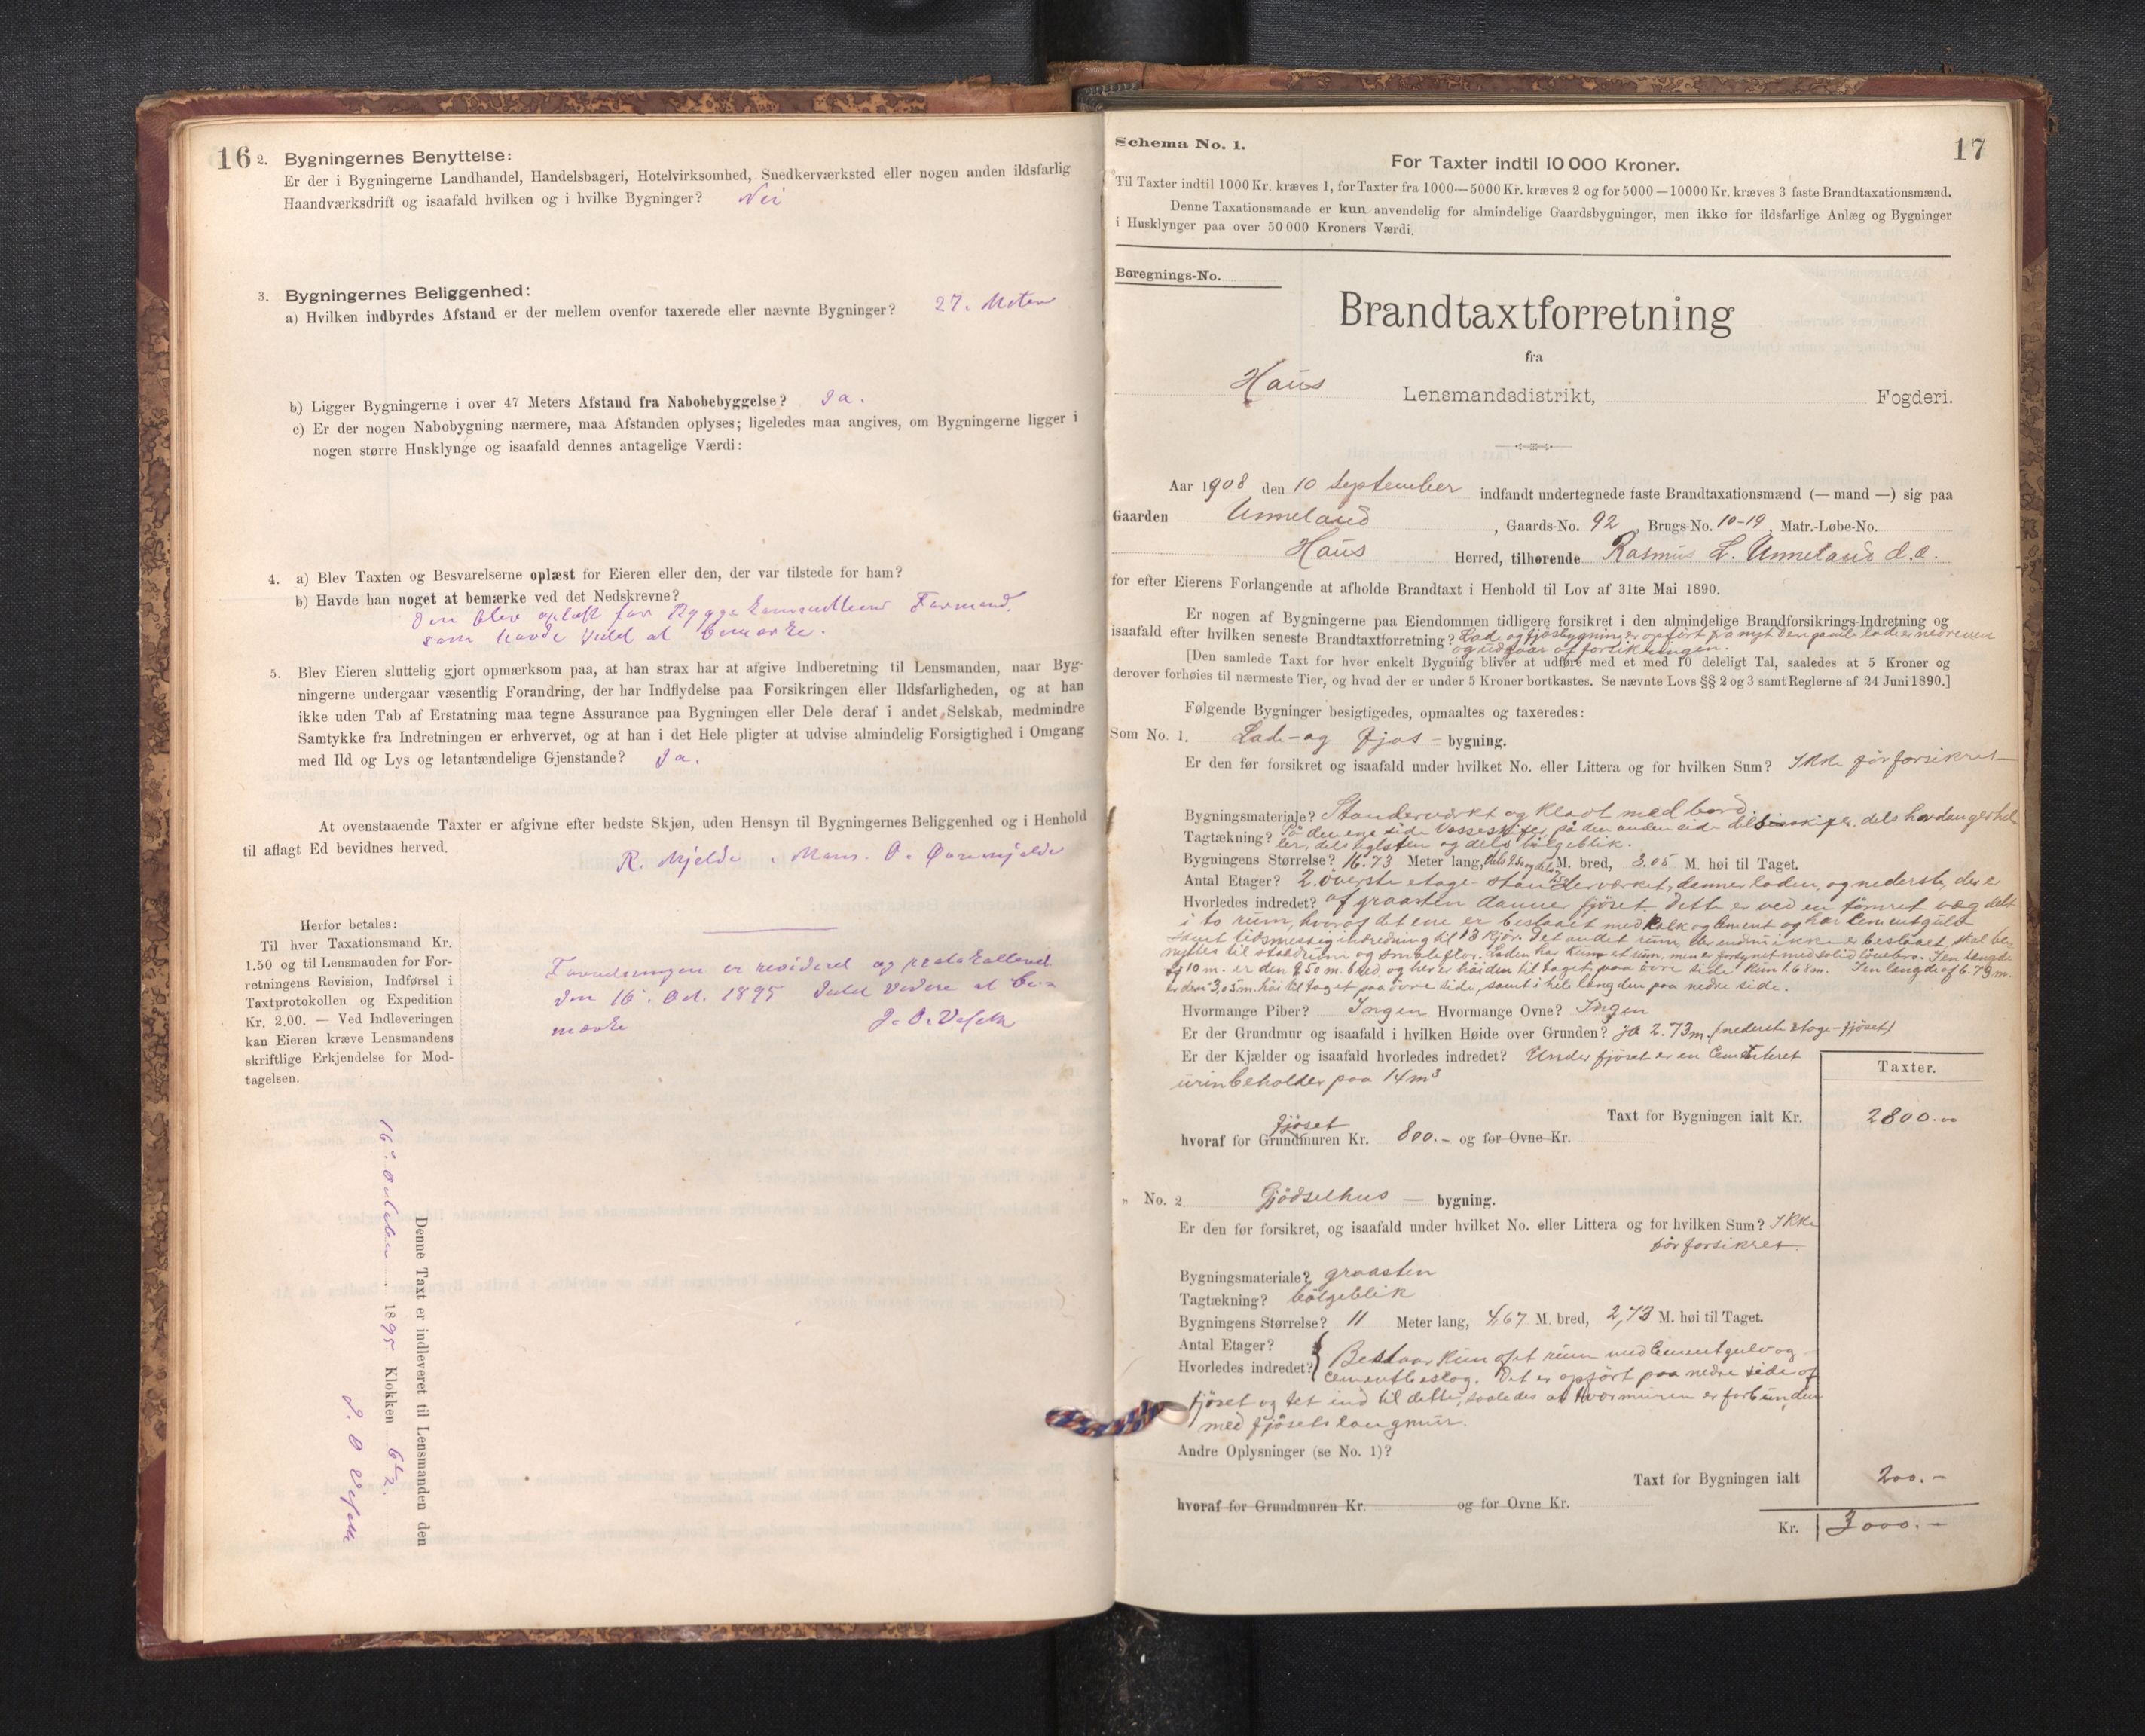 16
2. Bygningernes Benyttelse:
Er der i Bygningerne Landhandel, Handelsbageri, Hotelvirksomhed, Snedkerværksted eller nogen anden ildsfarlig
Haandværksdrift og isaafald hvilken og i hvilke Bygninger? Nei
3. Bygningernes Beliggenhed:
a) Hvilken indbyrdes Afstand er der mellem ovenfor taxerede eller nævnte Bygninger? 27. Meter
b) Ligger Bygningerne i over 47 Meters Afstand fra Nabobebyggelse? Ja.
c) Er der nogen Nabobygning nærmere, maa Afstanden oplyses; ligeledes maa angives, om Bygningerne ligger i
nogen større Husklynge og isaafald dennes antagelige Værdi:
4. a) Blev Taxten og Besvarelserne oplæst for Eieren eller den, der var tilstede for ham?
b) Havde han noget at bemærke ved det Nedskrevne?
Den blev oplæst for Formand,
som havde Intet at bemærke.
5. Blev Eieren sluttelig gjort opmærksom paa, at han strax har at afgive Indberetning til Lensmanden, naar Byg-
ningerne undergaar væsentlig Forandring, der har Indflydelse paa Forsikringen eller Ildsfarligheden, og at han
ikke uden Tab af Erstatning maa tegne Assurance paa Bygningen eller Dele deraf i andet Selskab, medmindre
Samtykke fra Indretningen er erhvervet, og at han i det Hele pligter at udvise almindelig Forsigtighed i Omgang
med Ild og Lys og letantændelige Gjenstande? Ja.
At ovenstaaende Taxter er afgivne efter bedste Skjøn, uden Hensyn til Bygningernes Beliggenhed og i Henhold
til aflagt Ed bevidnes herved.
R. Mjelde. Mons. O.
Herfor betales:
Til hver Taxationsmand Kr.
1.50 og til Lensmanden for For-
retningens Revision, Indførsel i
Taxtprotokollen og Expedition
Kr. 2.00. — Ved Indleveringen
kan Eieren kræve Lensmandens
skriftlige Erkjendelse for Mod-
tagelsen.
Forretningen er revideret og protokolleret
den 16. Oct. 1895 Intet videre at be-
mærke
Denne Taxt er indleveret til Lensmanden den
16. October 1895 Klokken 6
17
Schema No. 1.
For Taxter indtil 10 000 Kroner.
Til Taxter indtil 1000 Kr. kræves 1, for Taxter fra 1000—5000 Kr. kræves 2 og for 5000—10000 Kr. kræves 3 faste Brandtaxationsmænd.
Denne Taxationsmaade er kun anvendelig for almindelige Gaardsbygninger, men ikke for ildsfarlige Anlæg og Bygninger
i Husklynger paa over 50 000 Kroners Værdi.
Beregnings-No.
Brandtaxtforretning
fra
Haus Lensmandsdistrikt, Fogderi.
Aar 1908 den 10 September indfandt undertegnede faste Brandtaxationsmænd (— mand —) sig paa
Gaarden Unneland, Gaards-No. 92, Brugs-No. 10-19, Matr.-Løbe-No.
Haus Herred, tilhørende Rasmus L. Unneland d.æ.
for efter Eierens Forlangende at afholde Brandtaxt i Henhold til Lov af 31te Mai 1890.
Er nogen af Bygningerne paa Eiendommen tidligere forsikret i den almindelige Brandforsikrings-Indretning og
isaafald efter hvilken seneste Brandtaxtforretning? Lade og fjøsbygning er opført fra nyt den gamle lade er nedreven
og udgaar af forsikringen.
[Den samlede Taxt for hver enkelt Bygning bliver at udføre med et med 10 deleligt Tal, saaledes at 5 Kroner og
derover forhøies til nærmeste Tier, og hvad der er under 5 Kroner bortkastes. Se nævnte Lovs §§ 2 og 3 samt Reglerne af 24 Juni 1890.]
Følgende Bygninger besigtigedes, opmaaltes og taxeredes:
Som No. 1. Lade- og fjøs - bygning.
Er den før forsikret og isaafald under hvilket No. eller Littera og for hvilken Sum? Ikke før forsikret
Bygningsmateriale? Standerværkt og klædt med bord.
Tagtækning? Paa den ene side Vosseskifer, paa den anden side dels skifer, dels hardangerhel
ler, dels tiglsten og dels bølgeblik.
Bygningens Størrelse? 16.73 Meter lang, M. bred, 3.05 M. høi til Taget.
Antal Etager? 2. øverste etage - standerværket, danner laden, og nederste, der e
Hvorledes indredet? af graasten danner fjøset. Dette er ved en tømret væg delt
i to rum, hvoraf det ene er beslaaet med kalk og cement og har cementgulv
samt tidsmessig indredning til 13 kjør. Det andet rum, der endnu ikke er beslaaet, skal be-
nyttes til staldrum og smalefløs. Laden har kun et rum, men er forsynet med solid løvebro. I en længde
af 10 m. er den 8.50 m. bred og her er høiden til taget paa øvre side kun 1.68 m. I en længde af 6.73 m.
er den 3,05 m. høi til taget paa øvre side, samt i hele længden paa nedre side.
Hvormange Piber? Ingen Hvormange Ovne? Ingen
Er der Grundmur og isaafald i hvilken Høide over Grunden? ja 2.73 m. (nederste etage - fjøset)
Er der Kjælder og isaafald hvorledes indredet? Under fjøset er en cementeret
urinbeholder paa 14 m³
Taxter.
Taxt for Bygningen ialt Kr. 2800.00
fjøset
hvoraf for Grundmuren Kr. 800.- og for Ovne Kr.
" No. 2. Gjødselhus — bygning.
Er den før forsikret, og isaafald under hvilket No. eller Littera og for hvilken Sum? Ikke
før forsikret.
Bygningsmateriale? graasten
Tagtækning? bølgeblik
Bygningens Størrelse? 11 Meter lang, 4,67 M. bred, 2,73 M. høi til Taget.
Antal Etager?
Hvorledes indredet? Bestaar kun af et rum med cementgulv og
cementbeslag. Det er opført paa nedre side af
fjøset og tet ind til dette, saaledes at tværmuren er forbunden
med fjøsets langmur.
Andre Oplysninger (se No. 1)?
Taxt for Bygningen ialt 200.-
hvoraf for Grundmuren Kr. og for Ovne Kr.
Kr. 3000.-